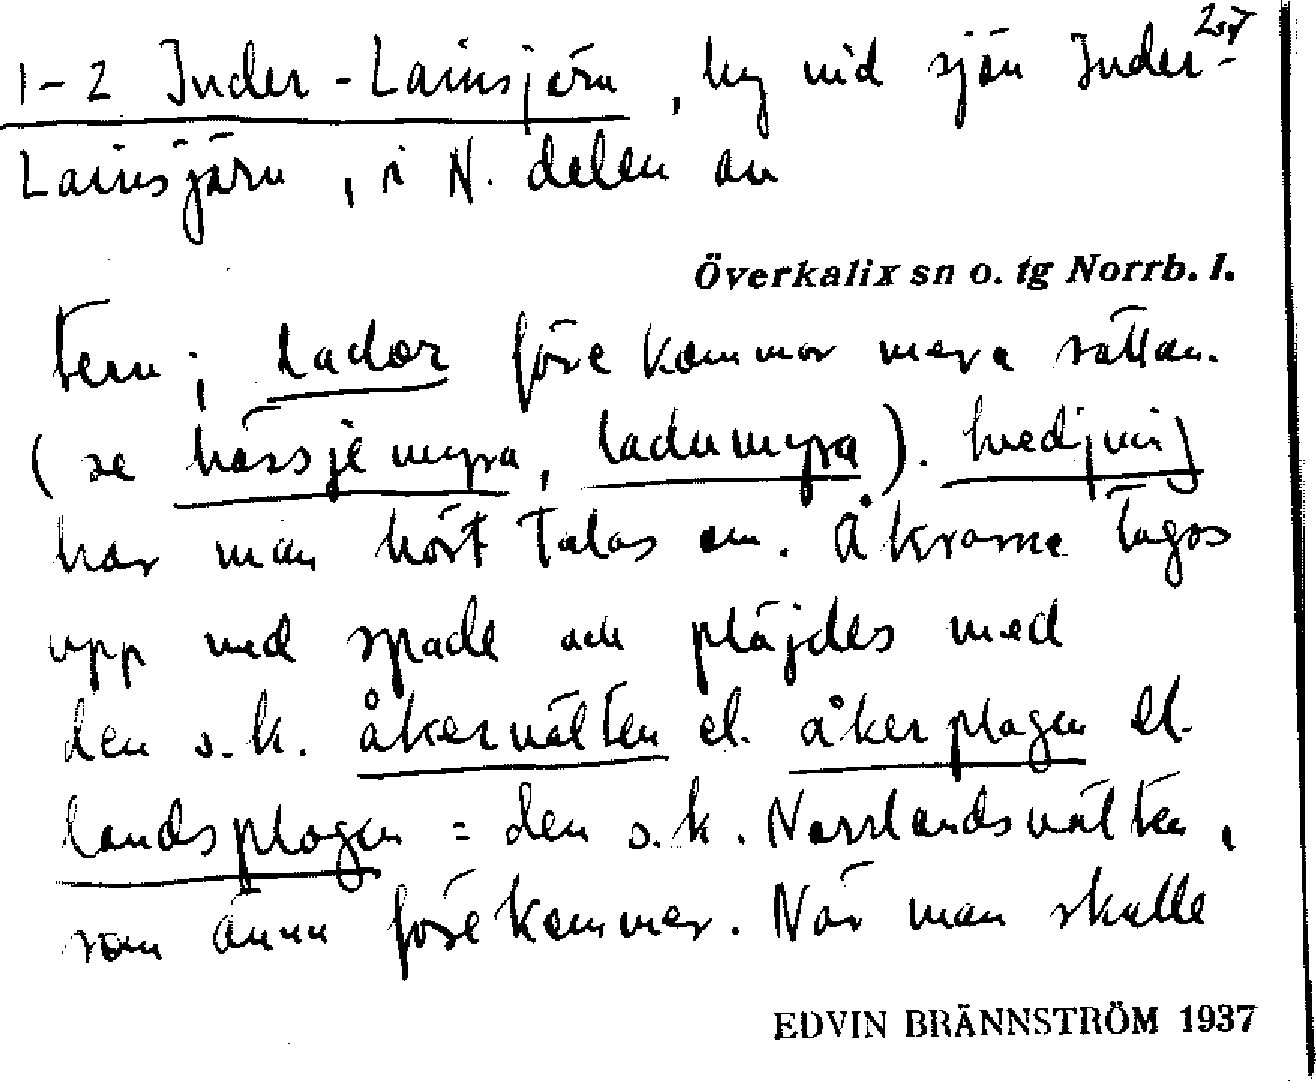 257
1-2 Inder-Lainsjärv, by vid sjön Inder-
Lainsjärv, i N. delen av
Överkalix sn o. tg Norrb. l.
tern; lador förekommor mera sällan.
(se hässjemyra, ladumyra).
har man hört talas om. Åkrarne togos
upp med spade och plöjdes med
den s.k. åkervälten el. åkerplogen el.
landsplogen = den s.k. Norrlandsvälten,
som ännu förekommer. När man skulle
EDVIN BRÄNNSTRÖM 1937